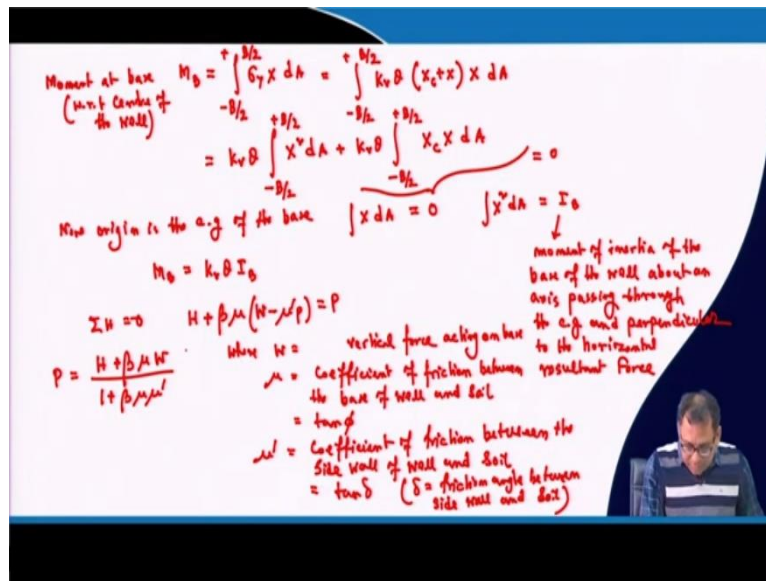 Moment at base M_B = ∫_{-B/2}^{+B/2} σ_y x dA = ∫_{-B/2}^{+B/2} k_v θ (x_c+x) x dA
(w.r.t Centre of the Well)
= k_v θ ∫_{-B/2}^{+B/2} x² dA + k_v θ ∫_{-B/2}^{+B/2} x_c x dA = 0
Now origin is the c.g of the base ∫ x dA = 0 ∫ x² dA = I_B
M_B = k_v θ I_B
moment of inertia of the
base of the well about an
axis passing through
the c.g and perpendicular
to the horizontal
resultant force
ΣH = 0 H + βμ(W - μ'P) = P
P = (H + βμW)/(1 + βμμ')
where W = vertical force acting on base
μ = coefficient of friction between
the base of well and soil
= tan φ
μ' = coefficient of friction between the
side wall of well and soil
= tan δ (δ = friction angle between
side wall and soil)